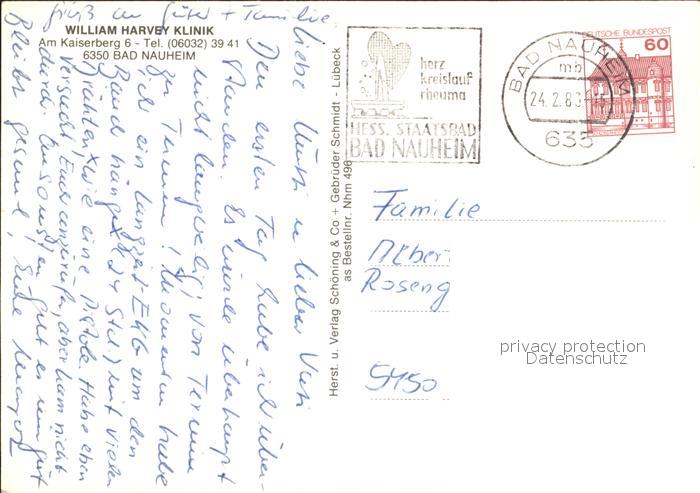 WILLIAM HARVEY KLINIK
Am Kaiserberg 6 - Tel. (06032) 39 41
6350 BAD NAUHEIM
Liebe Mutti u lieber Vati
Den ersten Tag habe ich über-
standen. Es wurde überhaupt
nicht langweilig, von Termin
zu Termin! Momentan habe
ich ein Langzeit-EKG um den
Band hängen (24 Std) mit vielen
Drähten, wie eine Pistole. Habe eben
versucht Euch anzurufen, aber kam nicht
durch. Ansonsten geht es mir gut
Bleibt gesund, Eure
Gruß an + Familie
Herst. u. Verlag Schöning & Co + Gebrüder Schmidt - Lübeck
as Bestellnr. Nhm 496
herz
kreislauf
rheuma
HESS. STAATSBAD
BAD NAUHEIM
BAD NAUHEIM
mb
24.2.8
635
DEUTSCHE BUNDESPOST
60
Familie
Albert
Roseng
5450
privacy protection
Datenschutz